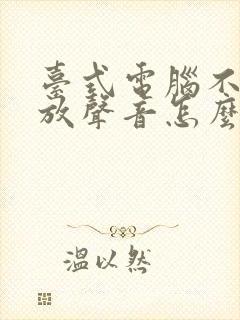 臺式電腦不
放聲音怎麼
溫以然